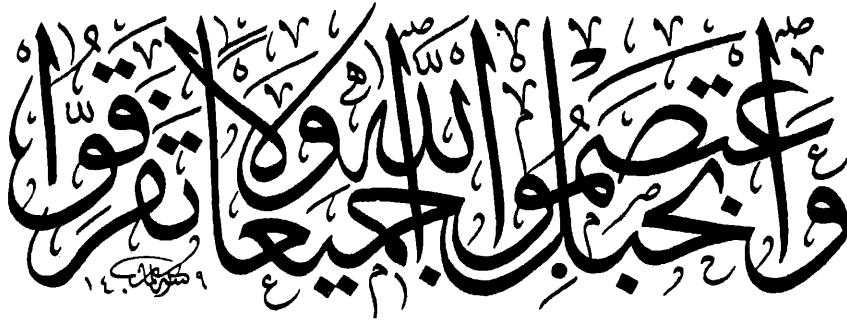 واعتصموا بحبل الله جميعا ولا تفرقوا
١٤٠٩